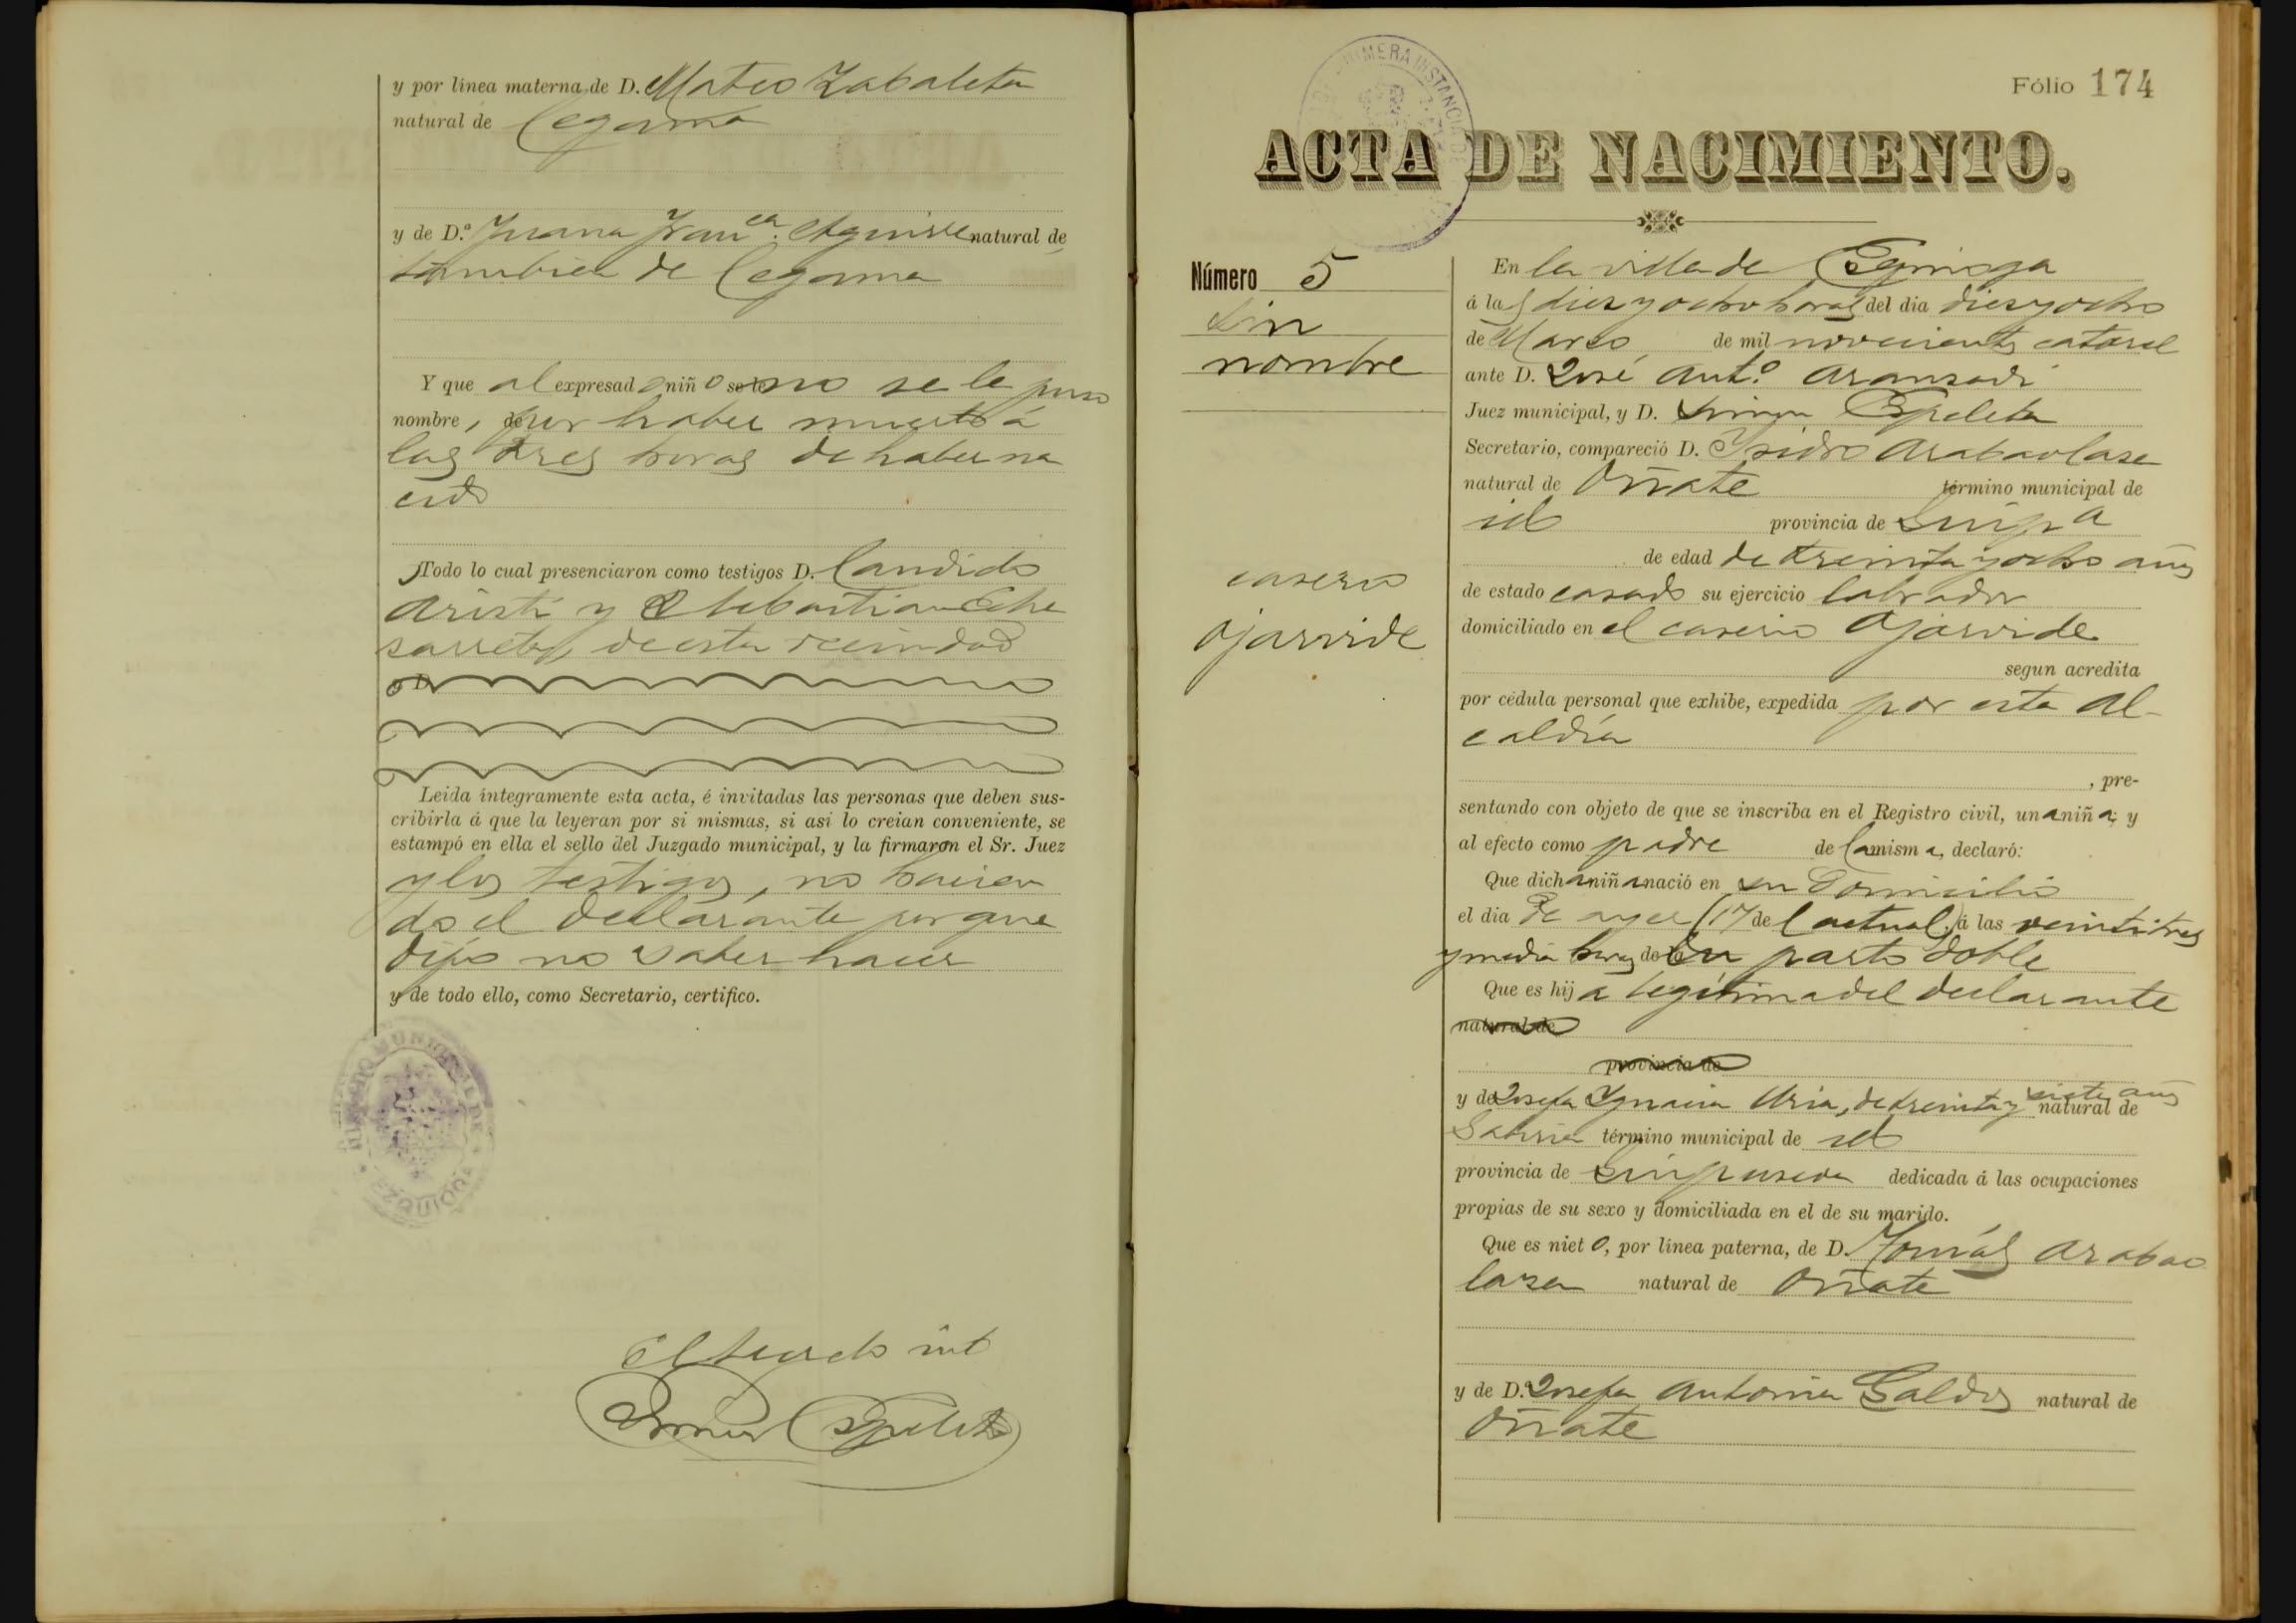 y por línea materna de D. Mateo Zabaleta
natural de Cegama
y de D.ª Juana Fran.ca Aguirre natural de
tambien de Cegama
Y que al expresado niño se le no se le puso
nombre, de por haber muerto á
las tres horas de haber na
cido
Todo lo cual presenciaron como testigos D. Candido
Aristi y Sebastian Eche
sarreta, de esta vecindad
y D.
Leida íntegramente esta acta, é invitadas las personas que deben sus-
cribirla á que la leyeran por si mismas, si asi lo creian conveniente, se
estampó en ella el sello del Juzgado municipal, y la firmaron el Sr. Juez
y los testigos, no hacien
do el declarante porque
dijo no saber hacer
y de todo ello, como Secretario, certifico.
JUZGADO MUNICIPAL DE
EZQUIOGA
El Secreto int
Espeleta
Fólio 174
PRIMERA INSTANCIA DE
ACTA DE NACIMIENTO.
Número 5
Sin
nombre
caserio
Ojarvide
En la villa de Ezquioga
á las diez y ocho horas del dia diez y ocho
de Marzo de mil novecientos catorce
ante D. José Ant.º Aranzadi
Juez municipal, y D. Espeleta
Secretario, compareció D. Isidro Arabaolaza
natural de Oñate término municipal de
id provincia de Guip.a
de edad de treinta y ocho años
de estado casado su ejercicio labrador
domiciliado en el caserio Ojarvide
segun acredita
por cédula personal que exhibe, expedida por esta Al-
caldía
, pre-
sentando con objeto de que se inscriba en el Registro civil, una niña; y
al efecto como padre de la misma, declaró:
Que dicha niña nació en su domicilio
el dia de ayer (17 del actual) á las veintitres
y media horas de la en parto doble
Que es hija legitima del declarante
natural de
provincia de
y de Josefa Ignacia Uria, de treinta y siete años natural de
Gabiria término municipal de id
provincia de Guipuzcoa dedicada á las ocupaciones
propias de su sexo y domiciliada en el de su marido.
Que es nieto, por línea paterna, de D. Tomás Arabao
laza natural de Oñate
y de D.ª Josefa Antonia Galdos natural de
Oñate